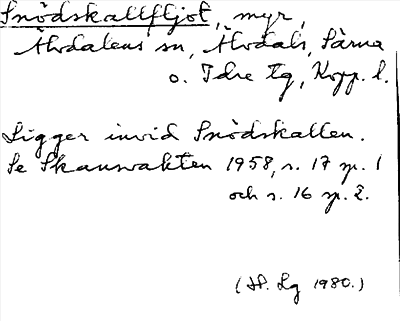 Snödskallfljot, myr,
Älvdalens sn, Älvdals, Särna
o. Idre tg, Kopp. l.
Ligger invid Snödskallen.
Se Skansvakten 1958, s. 17 sp. 1
och s. 16 sp. 2.
(H. Lg 1980.)